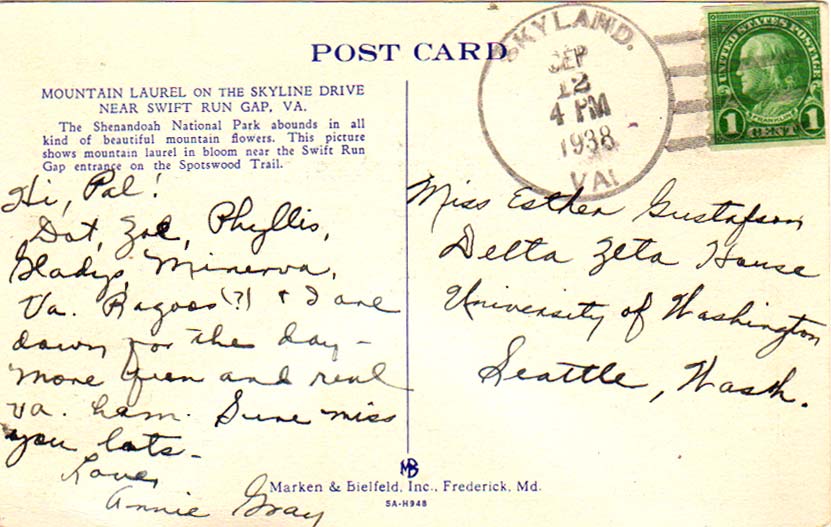 POST CARD
SKYLAND.
SEP
12
4 PM
1938
VA.
UNITED STATES POSTAGE
FRANKLIN
1 CENT 1
MOUNTAIN LAUREL ON THE SKYLINE DRIVE
NEAR SWIFT RUN GAP, VA.
The Shenandoah National Park abounds in all
kind of beautiful mountain flowers. This picture
shows mountain laurel in bloom near the Swift Run
Gap entrance on the Spotswood Trail.
Hi, Pal!
Dot, Zoe, Phyllis,
Gladys, Minerva,
Va. Ragoos(?) & I are
down for the day –
more fun and real
va. ham. Sure miss
you lots –
Love,
Annie Gray
Miss Esther Gustafson
Delta Zeta House
University of Washington
Seattle, Wash.
MB
Marken & Bielfeld, Inc., Frederick, Md.
5A-H948